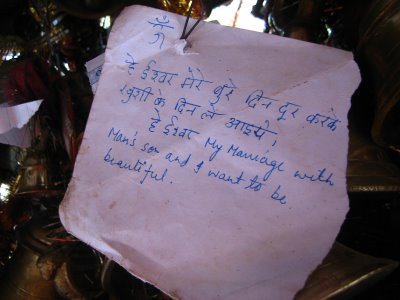 ॐ
हे ईश्वर मेरे बुरे दिन दूर करके
खुशी के दिन ले आइये,
हे ईश्वर My Marriage with
Man's son and I want to be
beautiful.